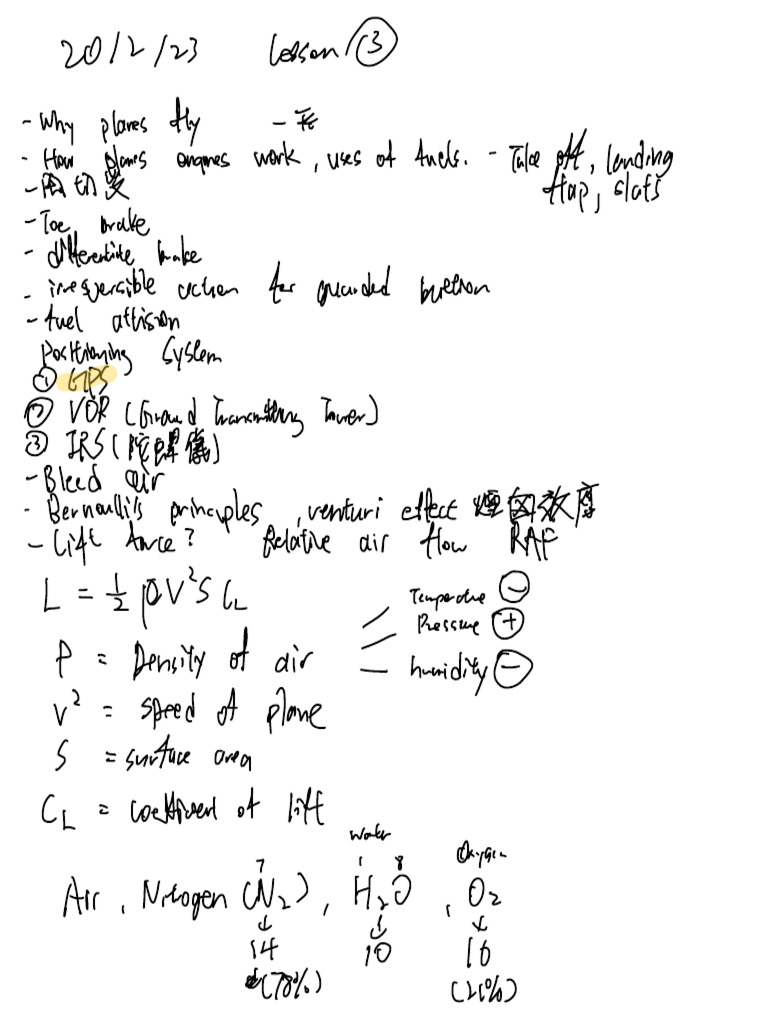 20/2/23 Lesson ③
- Why planes fly -
- How planes engines work, uses of fuels. - Take off, landing
flap, slats
- 風切變
- Toe brake
- differentite brake
- irreversible action for guarded button
- fuel
Positioning System
① GPS
② VOR (Ground Transmitting Tower)
③ IRS (陀螺儀)
- Bleed air
- Bernoulli's principles, venturi effect 煙囪效應
- Lift force? Relative air flow RAF
L = ½ ρV²S CL
Temperature ⊖
Pressure ⊕
ρ = Density of air
humidity ⊖
V² = speed of plane
S = surface area
CL = coefficient of lift
Water
7 1 8 Oxygen
Air, Nitogen (N₂), H₂O, O₂
↓ ↓ ↓
14 10 16
(78%) (21%)